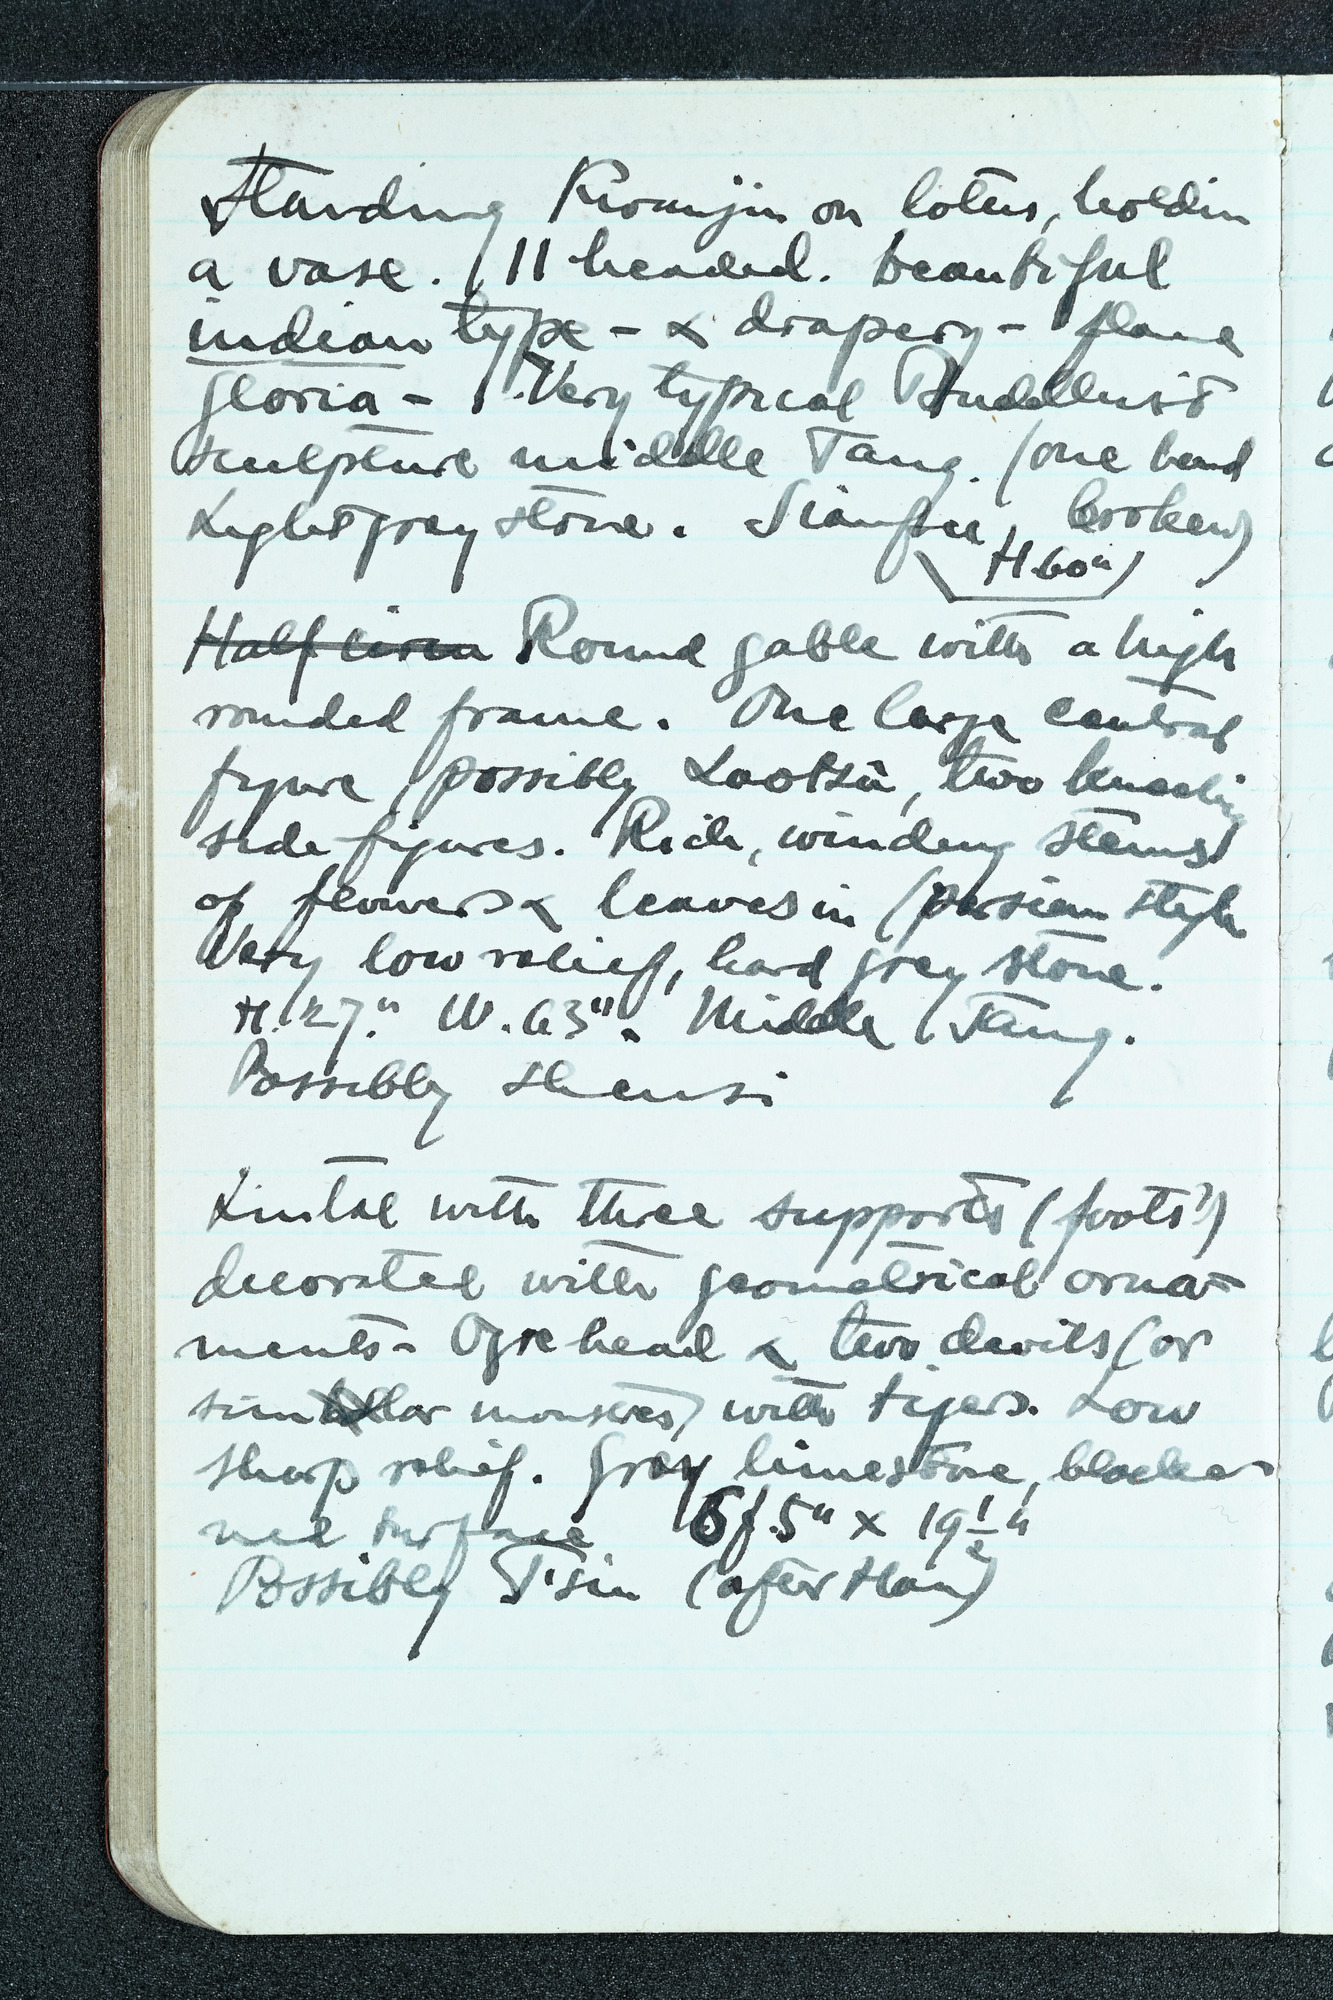 Standing Kwanjin on lotus, holdin
a vase. 11 headed. Beautiful
indian type - & drapery - flame
gloria - Very typical Buddhist
sculpture middle Tang. (one hand
Light grey stone. Sianfu, broken)
(H. 60")
Half circu Round gable with a high
rounded frame. One large central
figure, possibly Laotsü, two kneeling
side figures. Rich, winding stems
of flowers & leaves in (persian style
Very low relief, hard grey stone.
H. 27." W. 63". Middle Tang.
Possibly Shensi
Lintal with three supports (foots?)
decorated with geometrical orna-
ments - Ogre head & two devils (or
similar monstres) with tigers. Low
sharp relief. Grey limestone, blacke-
ned surface 6f.5" x 19½"
Possibly Tsin (after Han)